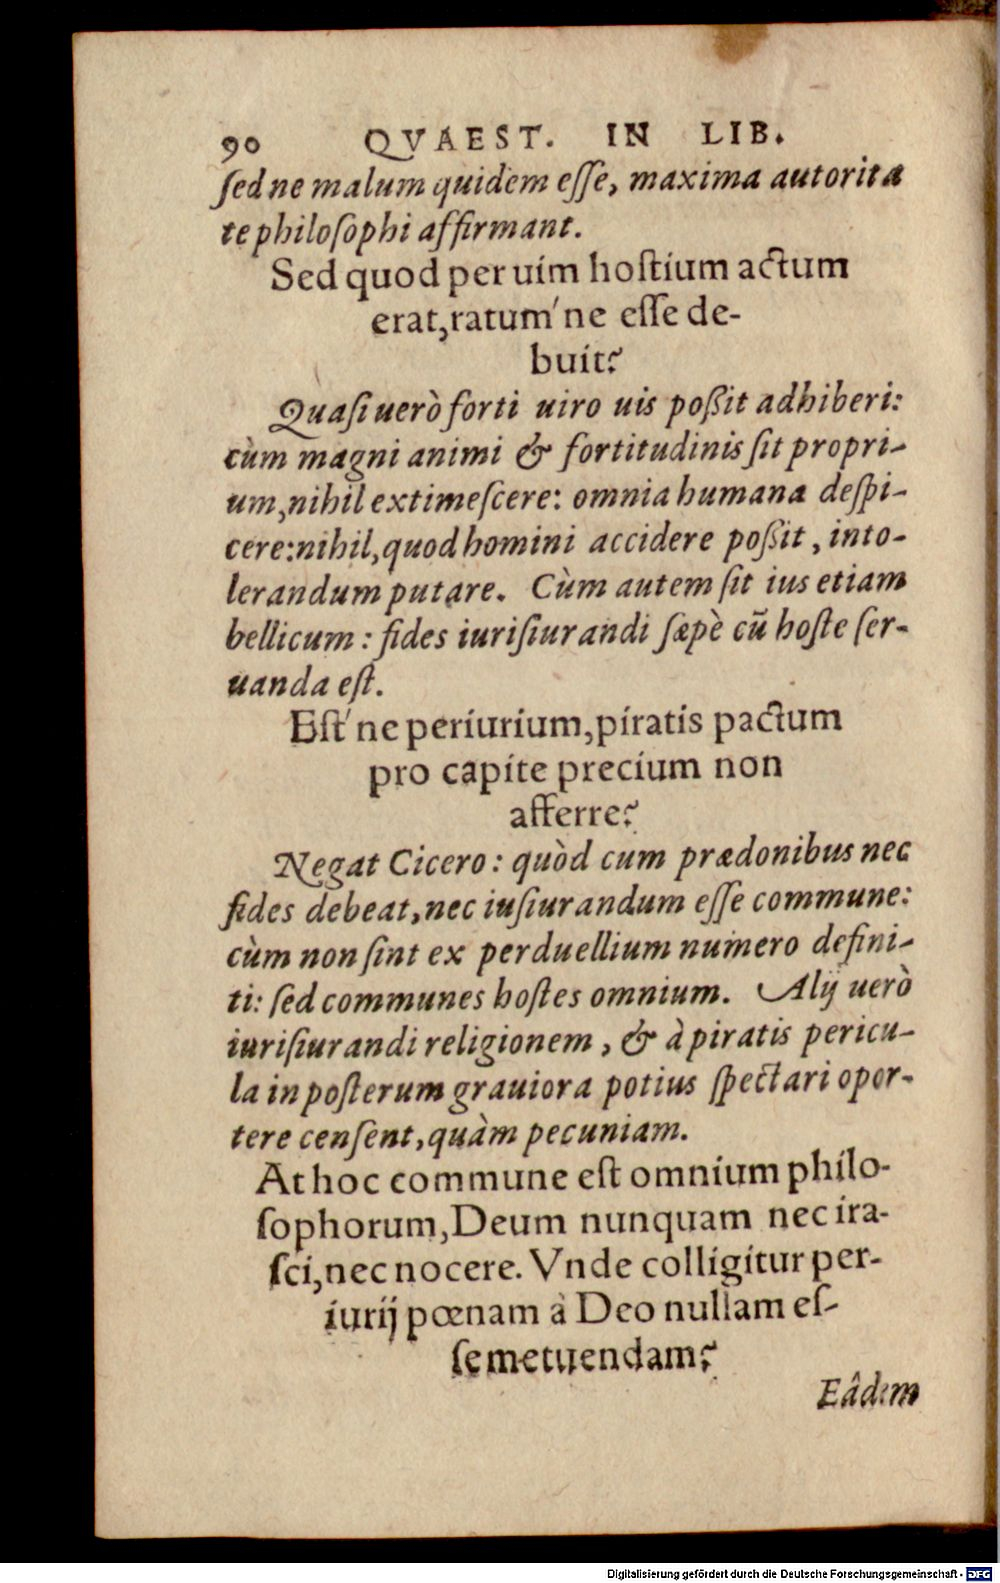 90 QVAEST. IN LIB.
sed ne malum quidem esse, maxima autorita
te philosophi affirmant.
Sed quod per uim hostium actum
erat, ratum'ne esse de-
buit?
Quasi uerò forti uiro uis poßit adhiberi:
cùm magni animi & fortitudinis sit propri-
um, nihil extimescere: omnia humana despi-
cere: nihil, quod homini accidere poßit, into-
lerandum putare. Cùm autem sit ius etiam
bellicum: fides iurisiurandi sæpè cũ hoste ser-
uanda est.
Est'ne periurium, piratis pactum
pro capite precium non
afferre?
Negat Cicero: quòd cum prædonibus nec
fides debeat, nec iusiurandum esse commune:
cùm non sint ex perduellium numero defini-
ti: sed communes hostes omnium. Alij uerò
iurisiurandi religionem, & à piratis pericu-
la in posterum grauiora potius spectari opor-
tere censent, quàm pecuniam.
At hoc commune est omnium philo-
sophorum, Deum nunquam nec ira-
sci, nec nocere. Vnde colligitur per-
iurij pœnam à Deo nullam es-
se metuendam?
Eâdem
Digitalisierung gefördert durch die Deutsche Forschungsgemeinschaft - DFG